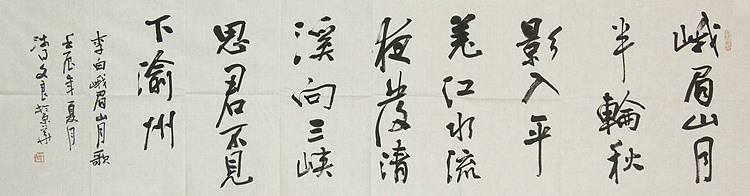 峨眉山月
半輪秋
影入平
羌江水流
夜發清
溪向三峽
思君不見
下渝州
李白峨眉山月歌
壬辰年夏月
文良於京華